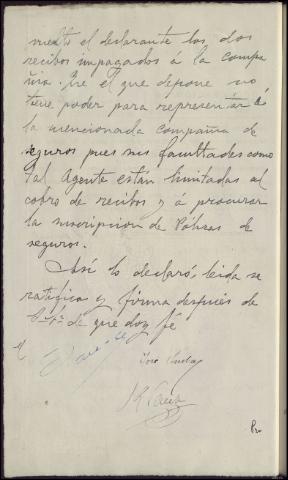 el declarante los dos
recibos impagados á la compa
ñia. Que el que depone no
tiene poder para representar á
la mencionada compañia de
seguros pues sus facultades como
tal Agente están limitadas al
cobro de recibos y á procurar
la suscripcion de Pólizas de
seguros.
Asi lo declaró, leida se
ratifica y firma despues de
S. Sª de que doy fé
José